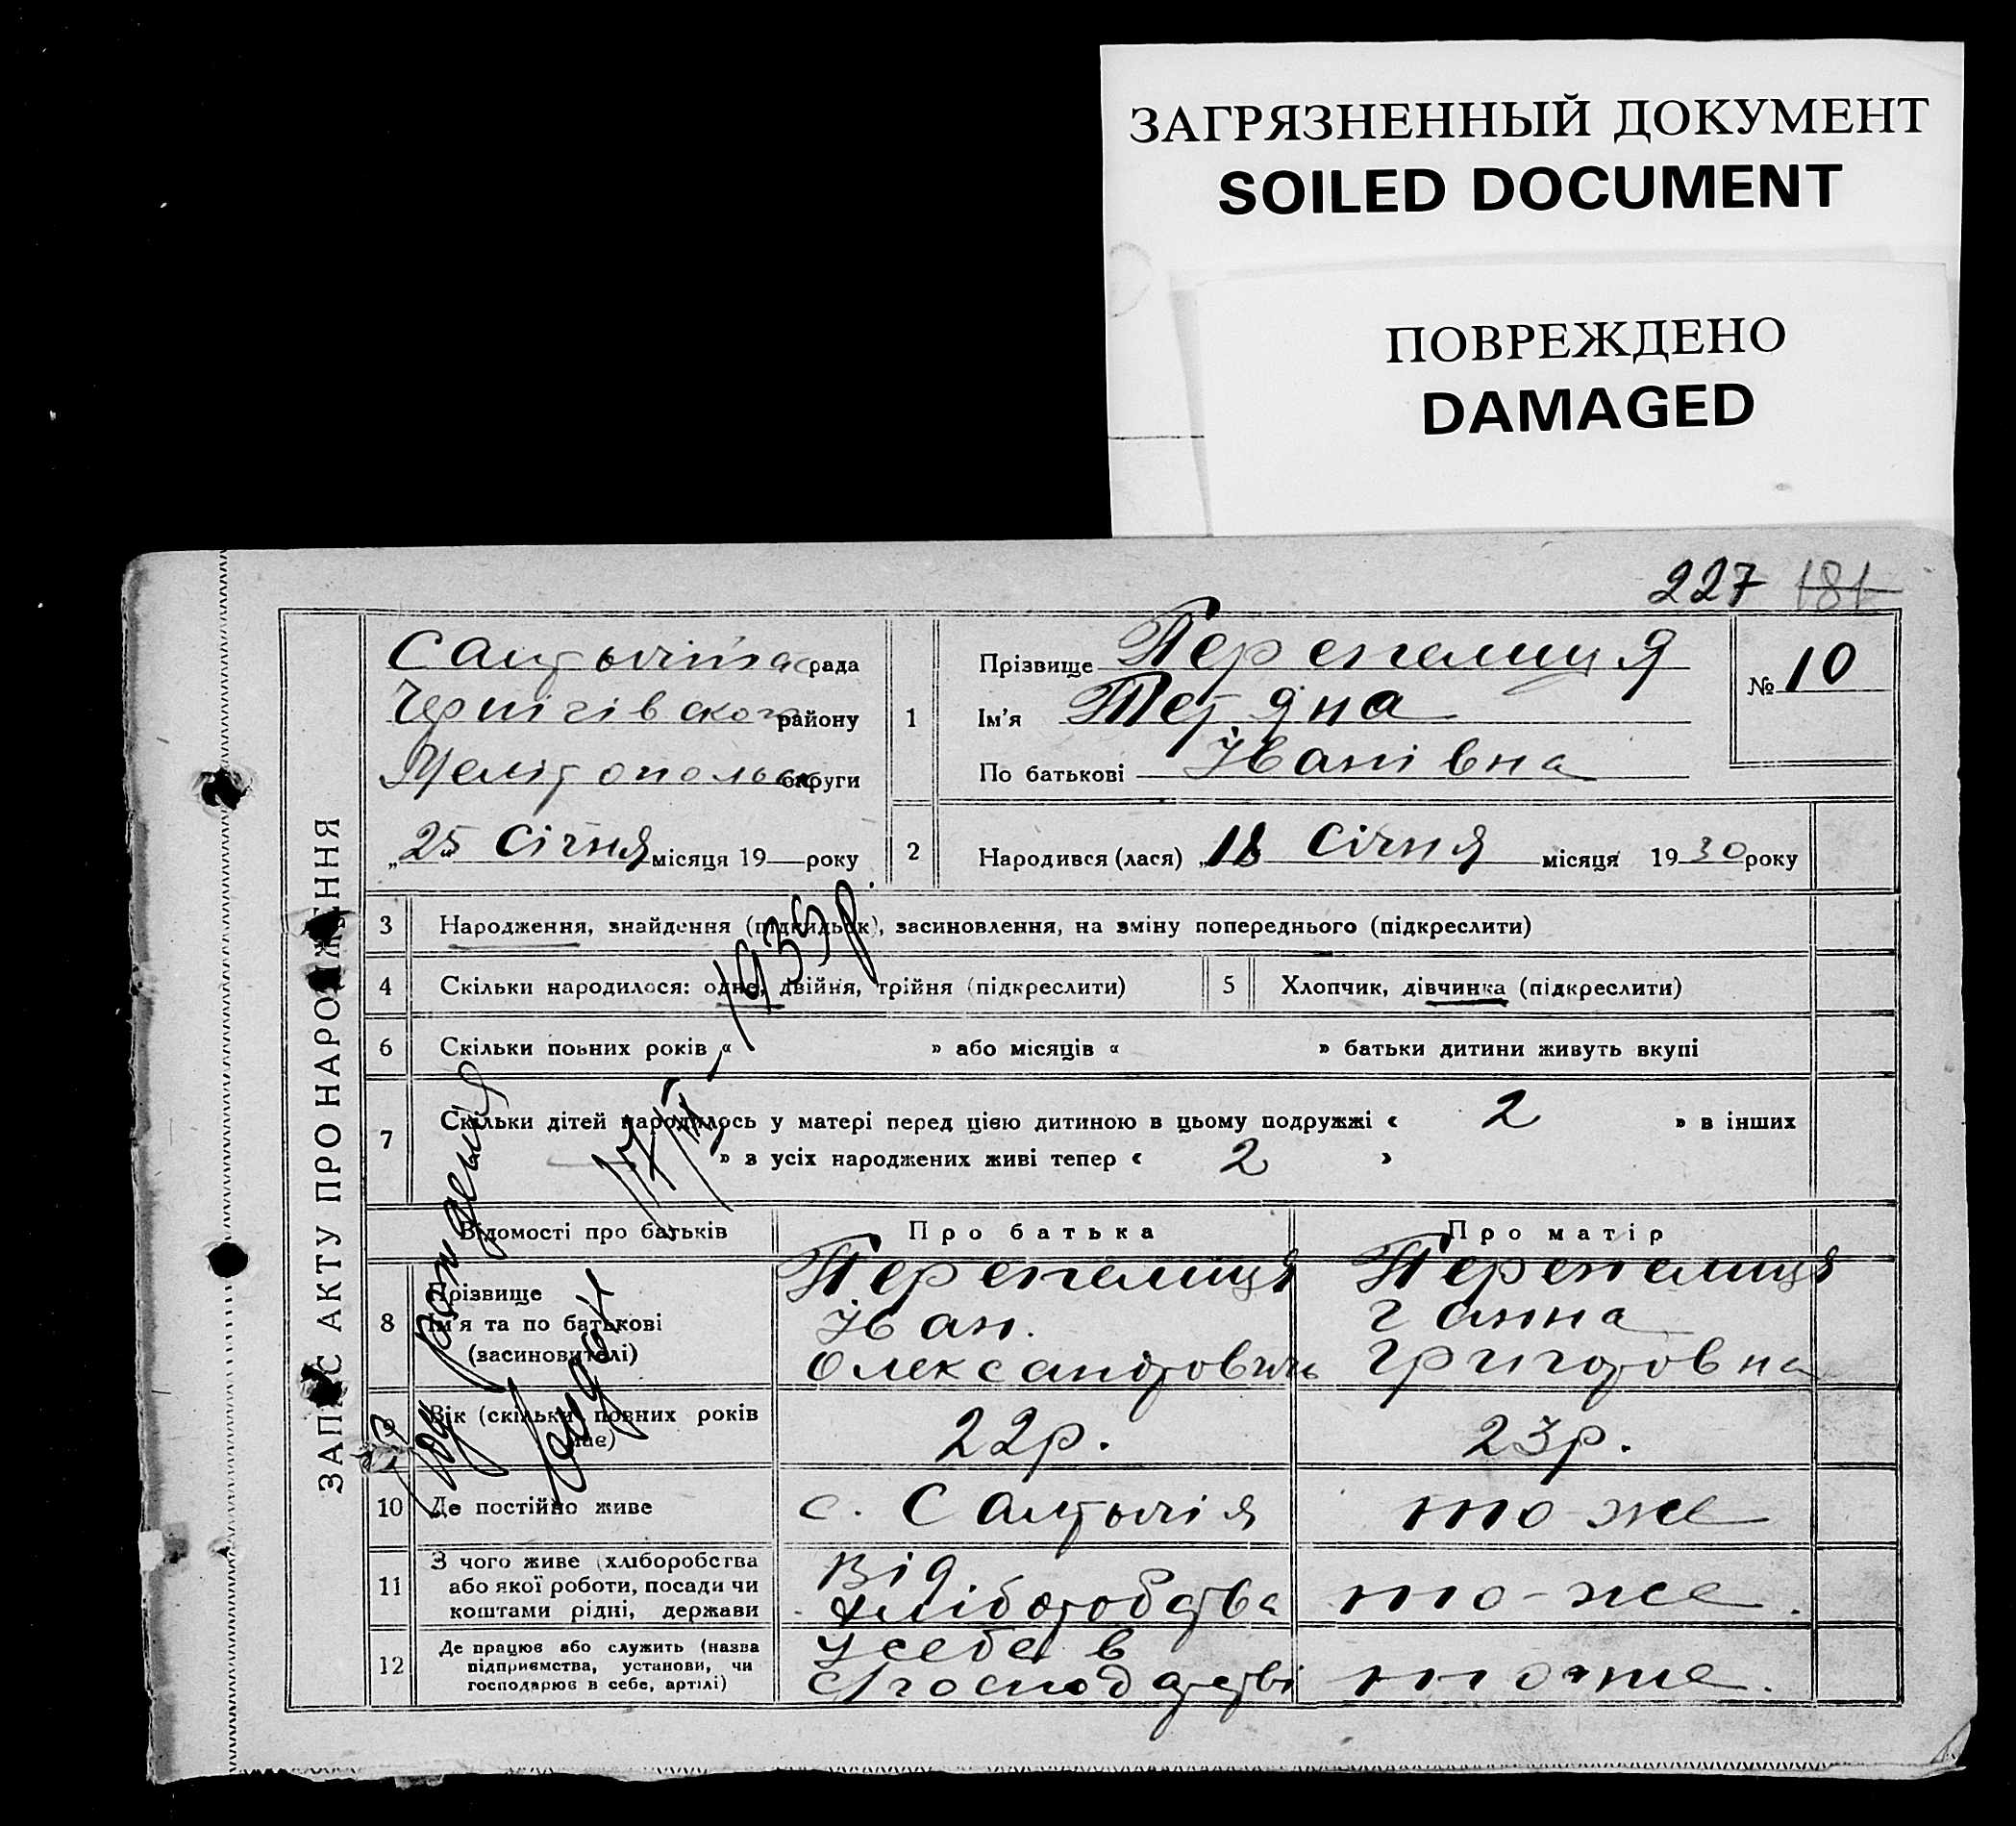 ЗАГРЯЗНЕННЫЙ ДОКУМЕНТ
SOILED DOCUMENT
ПОВРЕЖДЕНО
DAMAGED
227 181
ЗАПИС АКТУ ПРО НАРОДЖЕННЯ
Салтичіŭська рада
Чернігівского району
Мелітопольськ округи
„25" Січня місяця 19 року
1
Прізвище Перепелиця
Ім'я Тетяна
По батькові Іванівна
№ 10
2 Народився (лася) „18 Січня місяця 1930 року
3 Народження, знайдення (підкидьок), засиновлення, на зміну попереднього (підкреслити)
4 Скільки народилося: одне, двійня, трійня (підкреслити) 5 Хлопчик, дівчинка (підкреслити)
6 Скільки повних років « » або місяців « » батьки дитини живуть вкупі
7 Скільки дітей народилось у матері перед цією дитиною в цьому подружжі « 2 » в інших
» з усіх народжених живі тепер « 2 »
Відомості про батьків Про батька Про матір
8 Прізвище Перепелиця Перепелиця
Ім'я та по батькові Іван. Ганна
(засиновителі) Олександрович Григоровна
9 Вік (скільки повних років має) 22р. 23р.
10 Де постійно живе с. Салтичія то-же
11 З чого живе (хліборобства або якої роботи, посади чи коштами рідні, держави Від хліборобства то-же.
12 Де працює або служить (назва підприємства, установи, чи господарює в себе, артілі) У себе в господарстві то же.
1935р